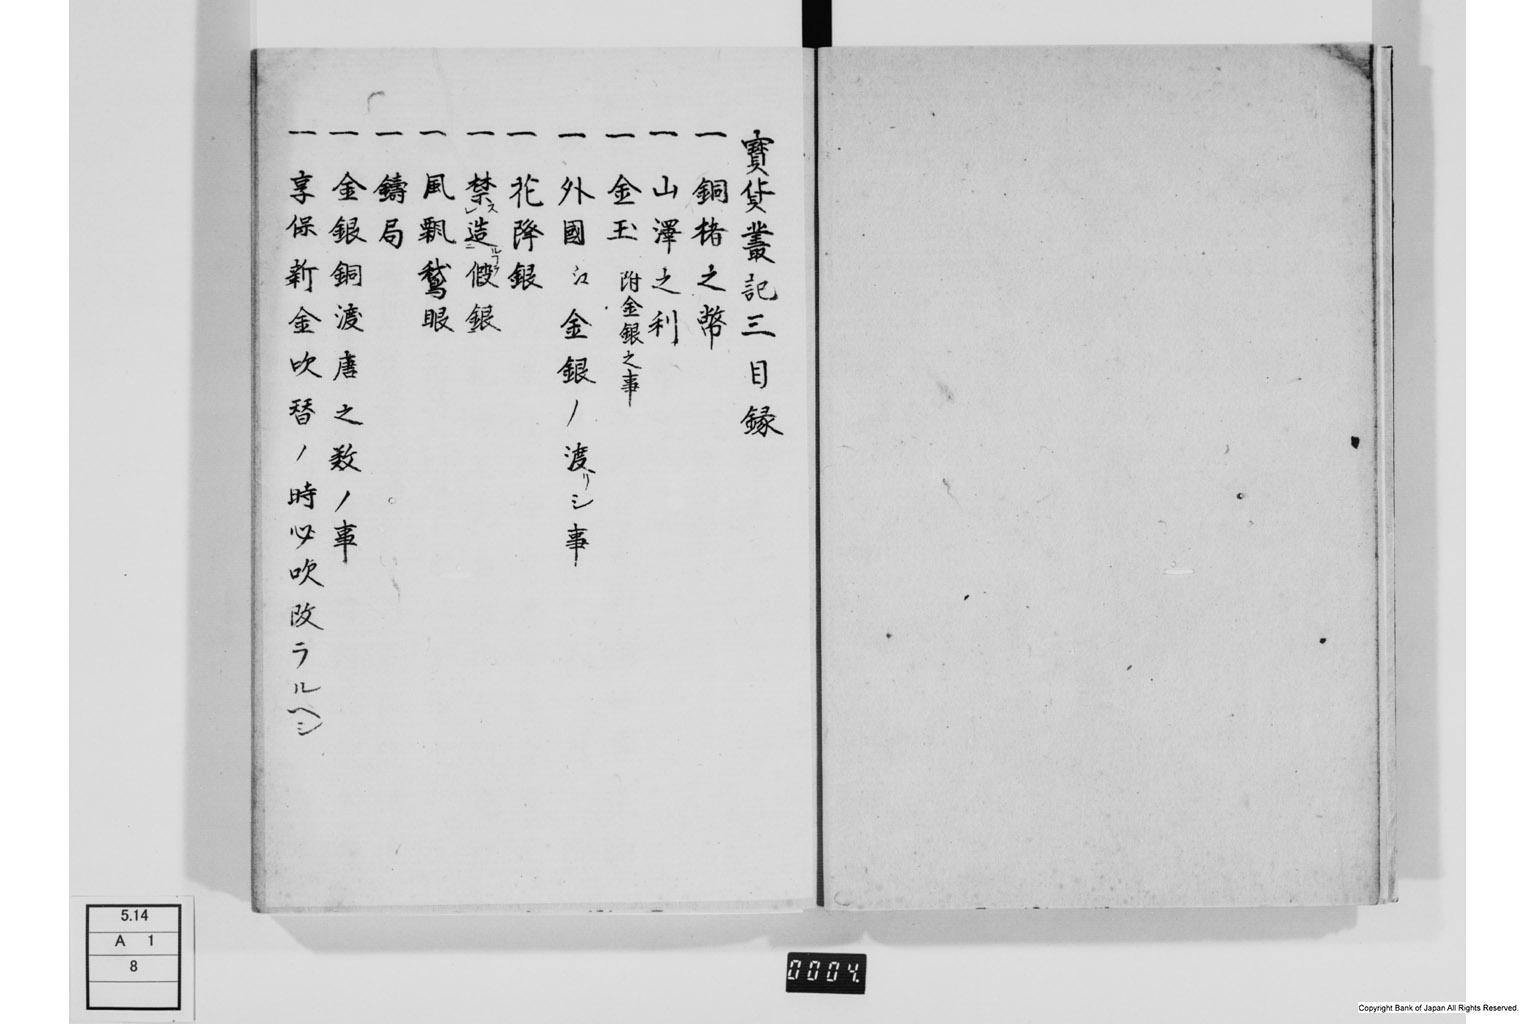 寶貨叢記三目録
一 銅楮之幣
一 山澤之利
一 金玉 附金銀之事
一 外國江金銀ノ渡リシ事
一 花降銀
一 禁スレ造ルヿヲニ假銀
一 風飄鵞眼
一 鑄局
一 金銀銅渡唐之数ノ事
一 享保新金吹替ノ時必吹改ラルヘシ
5.14
A 1
8
0004.
Copyright Bank of Japan All Rights Reserved.